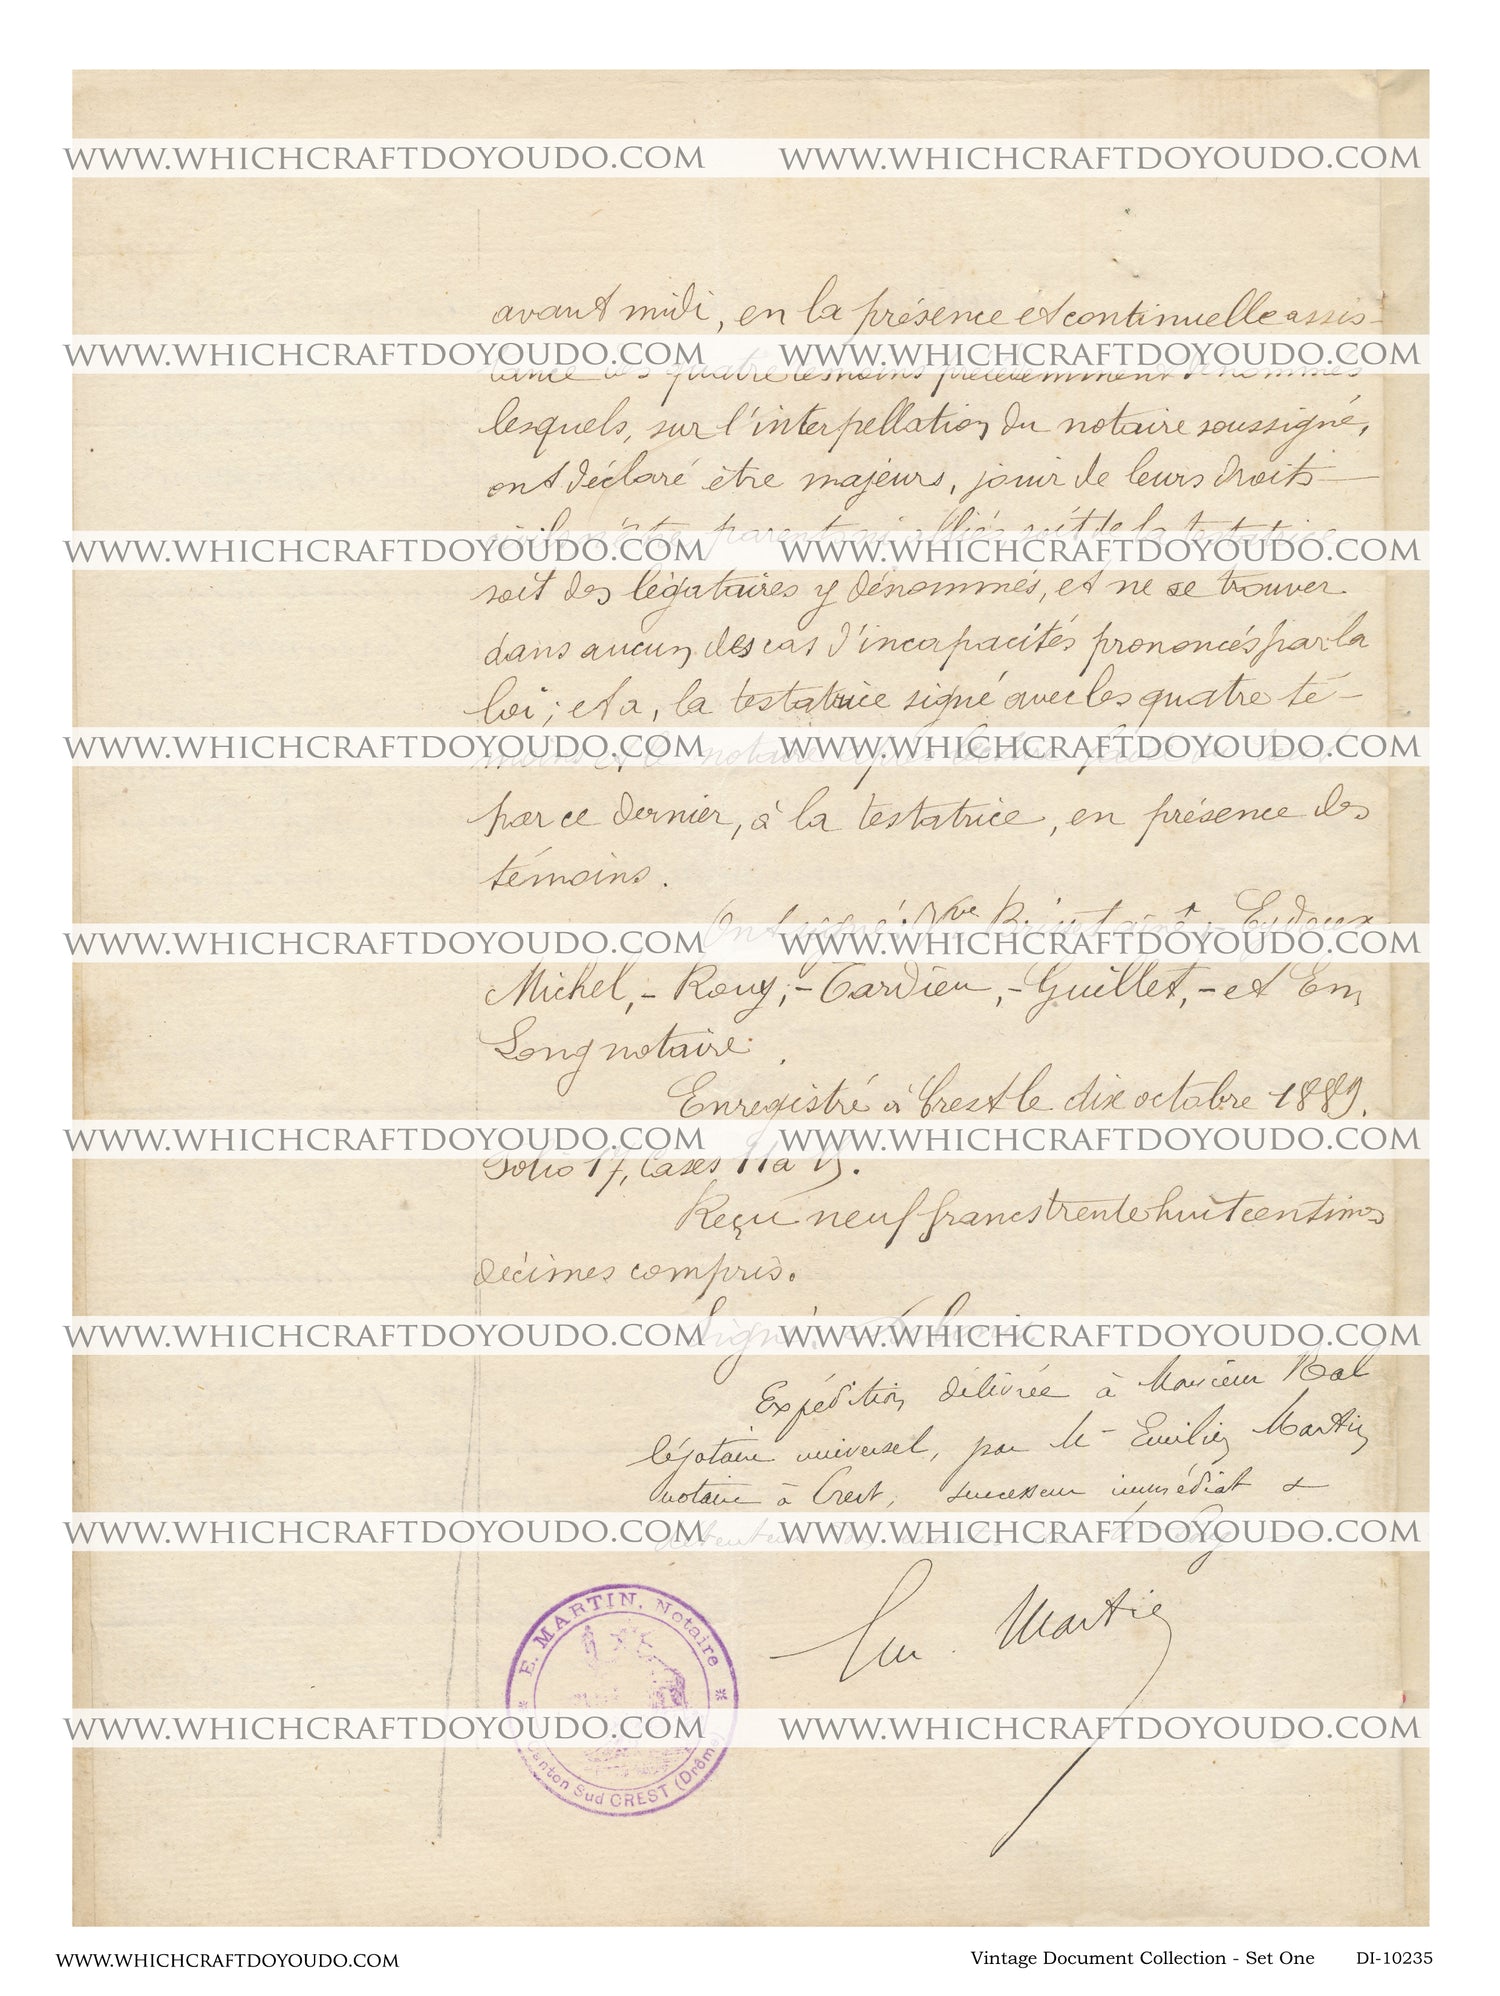 WWW.WHICHCRAFTDOYOUDO.COM WWW.WHICHCRAFTDOYOUDO.COM
avant midi, en la présence et continuelle assis-
WWW.WHICHCRAFTDOYOUDO.COM WWW.WHICHCRAFTDOYOUDO.COM
tance des quatre témoins précédemment dénommés
lesquels, sur l'interpellation du notaire soussigné,
ont déclaré être majeurs, jouir de leurs droits
WWW.WHICHCRAFTDOYOUDO.COM WWW.WHICHCRAFTDOYOUDO.COM
parents ni alliés soit de la testatrice
soit des légataires y dénommés, et ne se trouver
dans aucun des cas d'incapacités prononcés par la
loi; et a, la testatrice signé avec les quatre té-
WWW.WHICHCRAFTDOYOUDO.COM WWW.WHICHCRAFTDOYOUDO.COM
moins et le notaire après lecture
par ce dernier, à la testatrice, en présence des
témoins.
Ont signé: Vve
WWW.WHICHCRAFTDOYOUDO.COM WWW.WHICHCRAFTDOYOUDO.COM
Michel,- Roux,- Tardieu,- Guillet,- et Em
Long notaire.
Enregistré à Crest le dix octobre 1889.
WWW.WHICHCRAFTDOYOUDO.COM WWW.WHICHCRAFTDOYOUDO.COM
Folio 17, Cases 11 à
Reçu neuf francs trente huit centimes
décimes compris.
Signé:
WWW.WHICHCRAFTDOYOUDO.COM WWW.WHICHCRAFTDOYOUDO.COM
Expédition délivrée à Monsieur
légataire universel, par Me Emilien Martin
notaire à Crest, successeur immédiat &
WWW.WHICHCRAFTDOYOUDO.COM WWW.WHICHCRAFTDOYOUDO.COM
Em. Martin
E. MARTIN, Notaire
WWW.WHICHCRAFTDOYOUDO.COM WWW.WHICHCRAFTDOYOUDO.COM
Canton Sud CREST (Drôme)
WWW.WHICHCRAFTDOYOUDO.COM Vintage Document Collection - Set One DI-10235